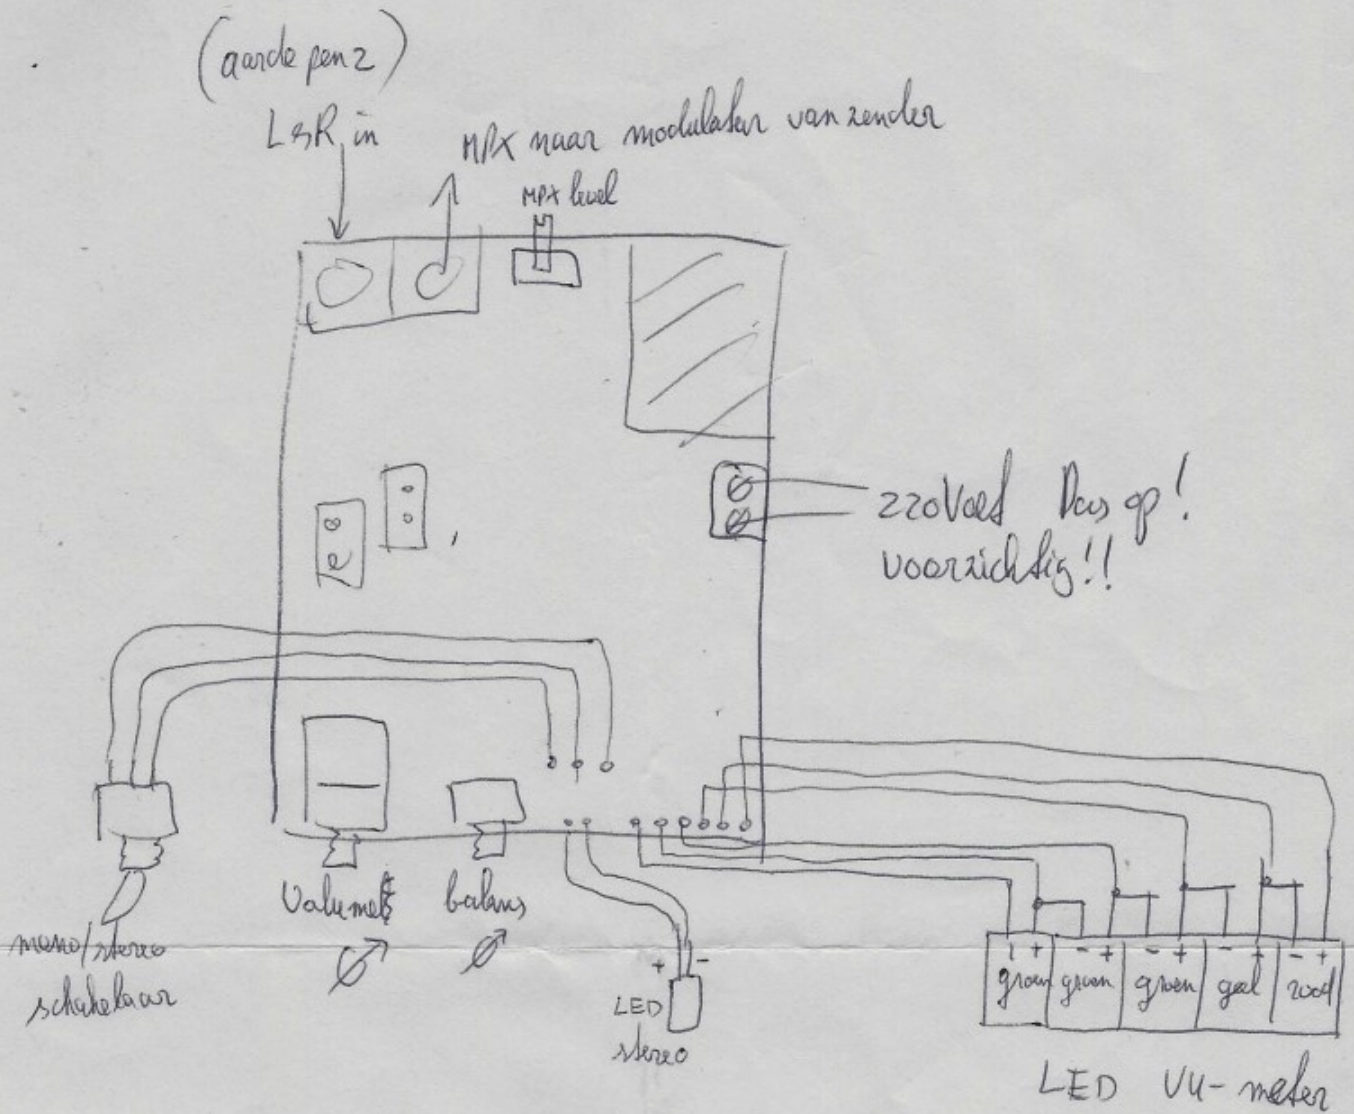 (aarde pen 2)
L&R in
MPX naar modulator van zender
MPX level
220Volt Pas op!
voorzichtig!!
Volume
balans
mono/stereo
schakelaar
+ -
LED
stereo
- + - + - + - + - +
groen groen groen geel rood
LED VU-meter